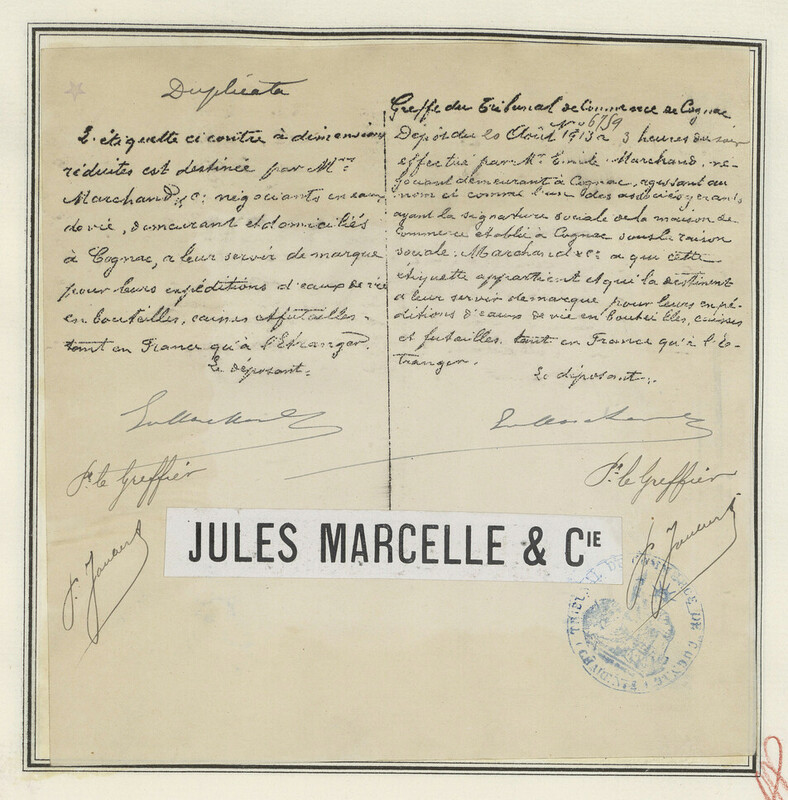 Duplicata
L'étiquette ci contre à dimensions
réduites est destinée par Mrs
Marchand & Cie négociants en eaux
de vie, demeurant et domiciliés
à Cognac, a leur servir de marque
pour leurs expéditions d'eaux de vie
en bouteilles, caisses et futailles
tant en France qu'à l'Etranger.
Le déposant:
Pr le Greffier
Greffe du Tribunal de Commerce de Cognac
No 6759
Dépôt du 20 Août 1913 à 3 heures du soir
effectué par Mr Emile Marchand, né-
gociant demeurant à Cognac, agissant au
nom et comme l'un des associés gérants
ayant la signature sociale de la maison de
Commerce établie à Cognac sous la raison
sociale: Marchand & Cie a qui cette
étiquette appartient et qui la destinent
a leur servir de marque pour leurs expé-
ditions d'eaux de vie en bouteilles, caisses
et futailles, tant en France qu'à l'é-
tranger.
Le déposant:
Pr le Greffier
JULES MARCELLE & CIE
TRIBUNAL DE COMMERCE DE COGNAC (CHARENTE)